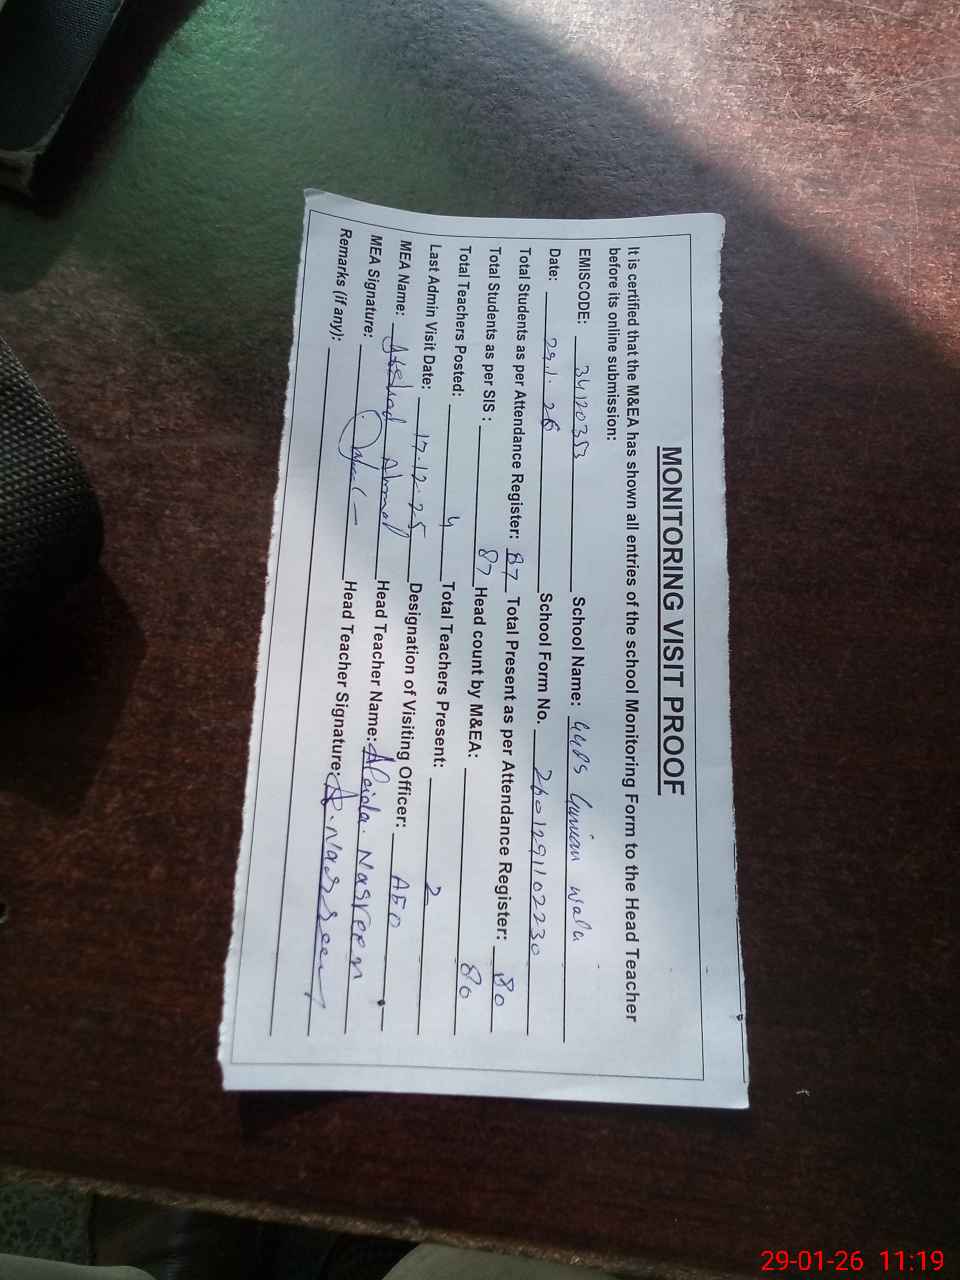 MONITORING VISIT PROOF
It is certified that the M&EA has shown all entries of the school Monitoring Form to the Head Teacher
before its online submission:
EMISCODE: 34120353 School Name: GGPS Gunian wala
Date: 29.1.26 School Form No. 2601291102230
Total Students as per Attendance Register: 87 Total Present as per Attendance Register: 80
Total Students as per SIS : 87 Head count by M&EA: 80
Total Teachers Posted: 4 Total Teachers Present: 2
Last Admin Visit Date: 17.12.25 Designation of Visiting Officer: AEO
MEA Name: Ahmad Head Teacher Name: Abida Nasreen
MEA Signature: Head Teacher Signature: A. Nasreen
Remarks (if any):
29-01-26 11:19